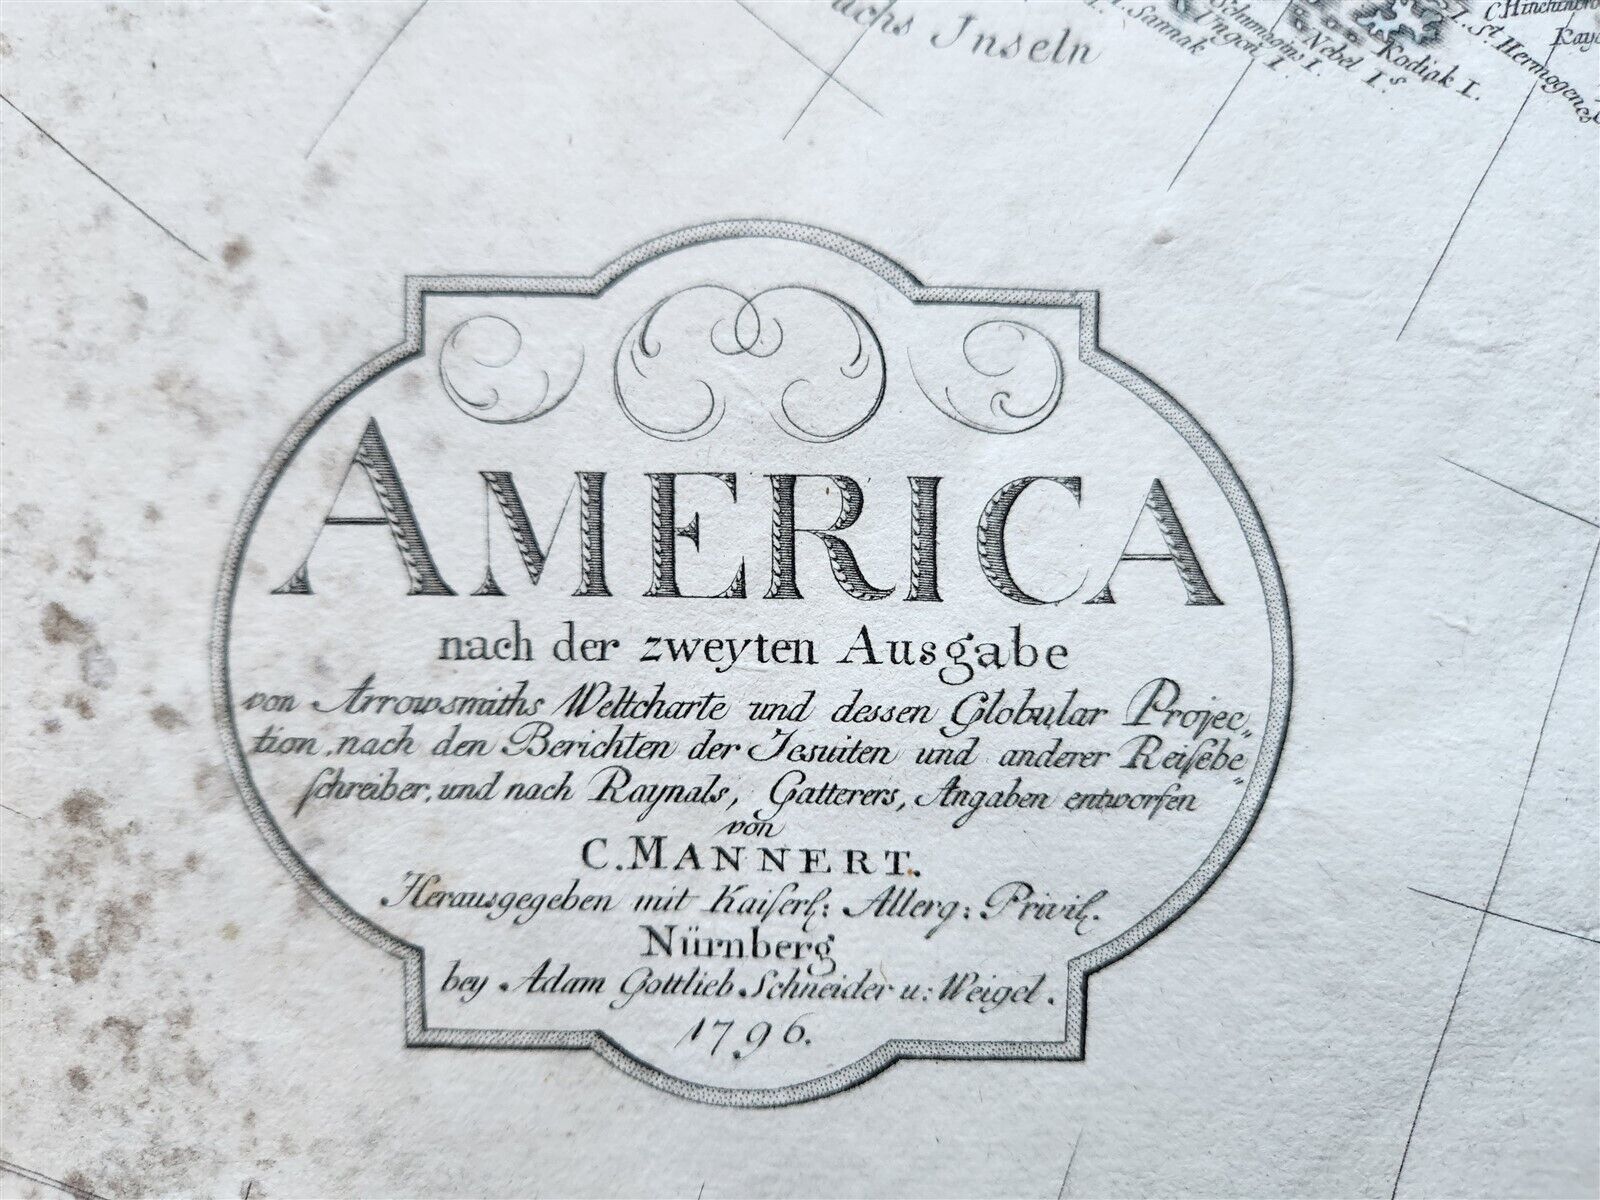 Inseln
I. Sannak
Ungon I.
Schumagins I.
Nebel Is.
Kodiak I.
I. St. Hermogenes
AMERICA
nach der zweyten Ausgabe
von Arrowsmiths Weltcharte und dessen Globular Projec„
tion, nach den Berichten der Jesuiten und anderer Reiſebe„
ſchreiber, und nach Raynals, Gatterers, Angaben entworfen
von
C. MANNERT.
Herausgegeben mit Kaiſerl: Allerg: Privil.
Nürnberg
bey Adam Gottlieb Schneider u: Weigel.
1796.